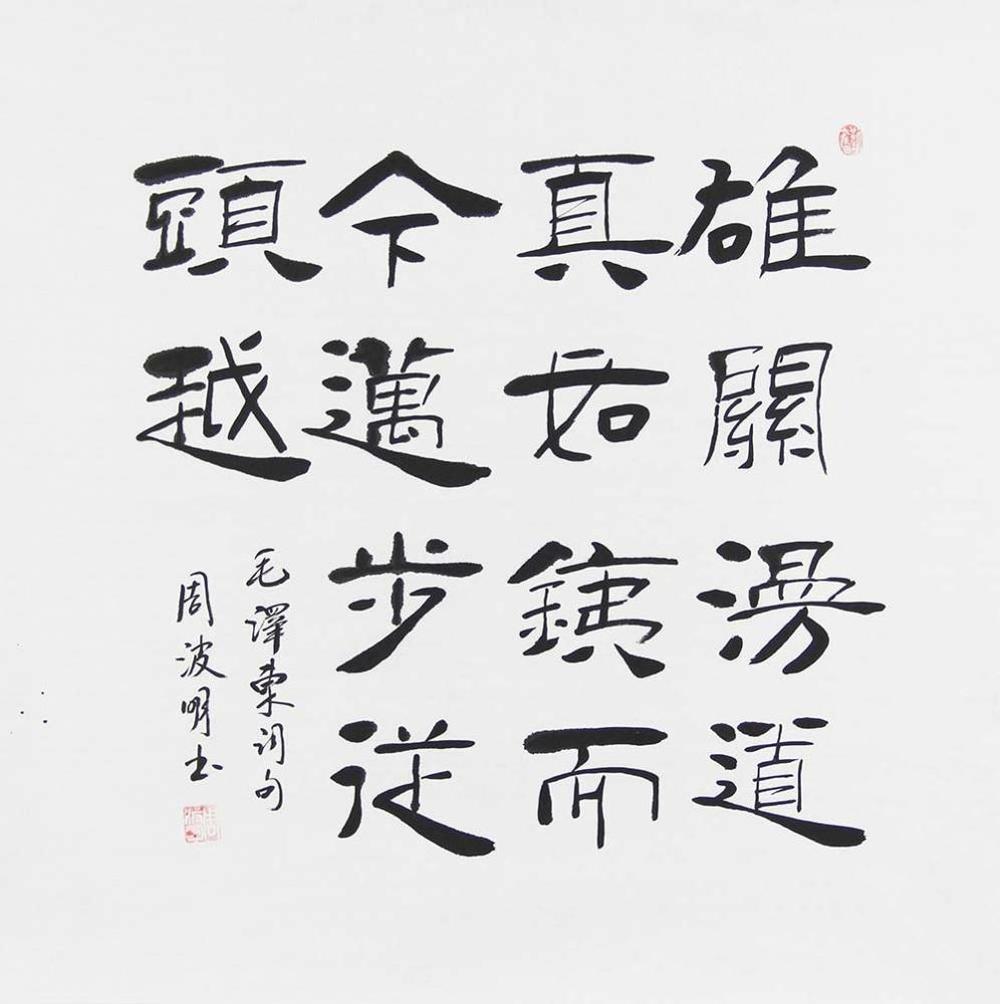 雄關漫道
真如銕而
今邁步從
頭越
毛澤東词句
周波明书